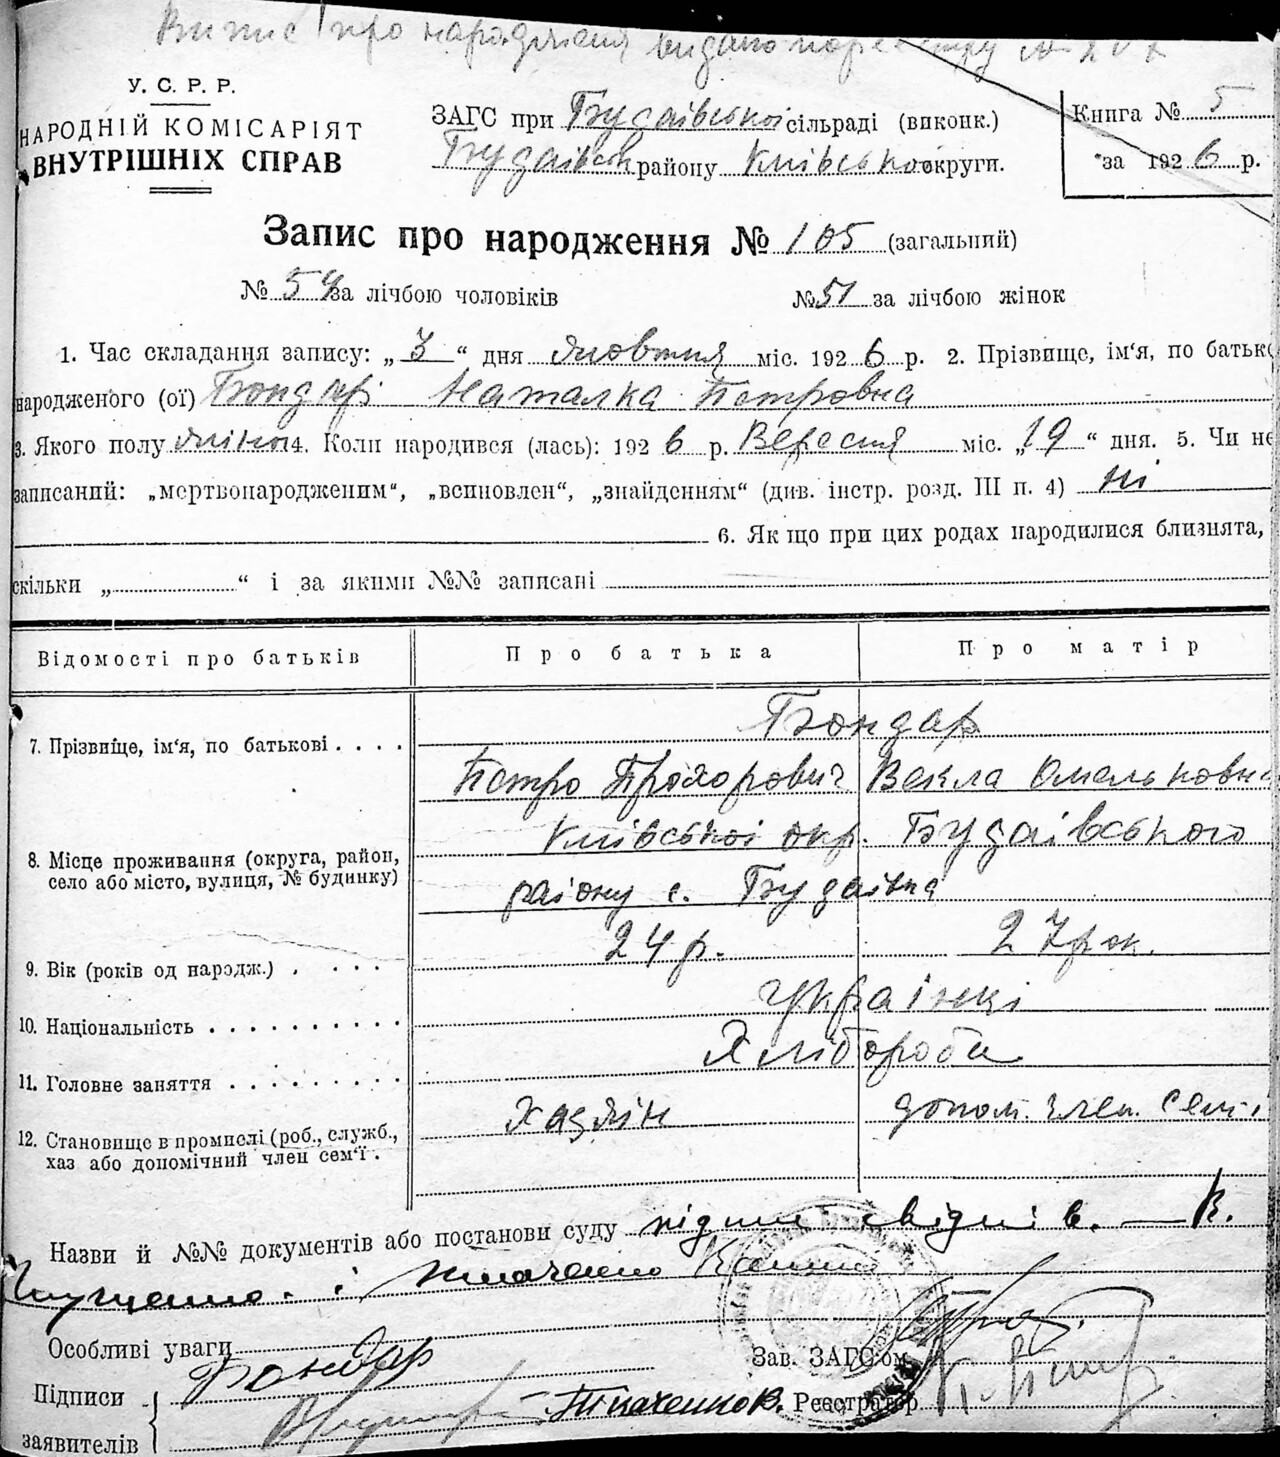 Випис про народження видано по реєстру №
У. С. Р. Р.
НАРОДНІЙ КОМІСАРІЯТ
ВНУТРІШНІХ СПРАВ
ЗАГС при Будаївської сільраді (виконк.)
Будаївськ району Київської округи.
Книга № 5
за 1926 р.
Запис про народження № 105 (загальний)
№ 54 за лічбою чоловіків № 51 за лічбою жінок
1. Час складання запису: „3“ дня жовтня міс. 1926 р. 2. Прізвище, ім‘я, по батьк
народженого (ої) Бондарь Наталка Петровна
3. Якого полу жіноч 4. Коли народився (лась): 1926 р. Вересня міс. „19“ дня. 5. Чи не
записаний: „мертвонародженим“, „всиновлен“, „знайденням“ (див. інстр. розд. III п. 4) ні
6. Як що при цих родах народилися близнята,
скільки „ “ і за якими №№ записані
Відомості про батьків Про батька Про матір
7. Прізвище, ім‘я, по батькові . . . . Бондар
Петро Прохорович Векла Омельковна
8. Місце проживання (округа, район, село або місто, вулиця, № будинку) Київської окр. Будаївського
району с. Будаївка
9. Вік (років од народж.) . . . . 24 р. 27 рок.
10. Національність . . . . . . . . . . Українці
11. Головне заняття . . . . . . . . . Хлібороби
12. Становище в промислі (роб., служб., хаз або допомічний член сем‘ї . Хазяїн допом. член. сем.
Назви й №№ документів або постанови суду підпис свідків. — К.
і Ткаченко
Особливі уваги
Бондар Зав. ЗАГС‘ом
Підписи
заявителів Ткаченко В. Реєстратор